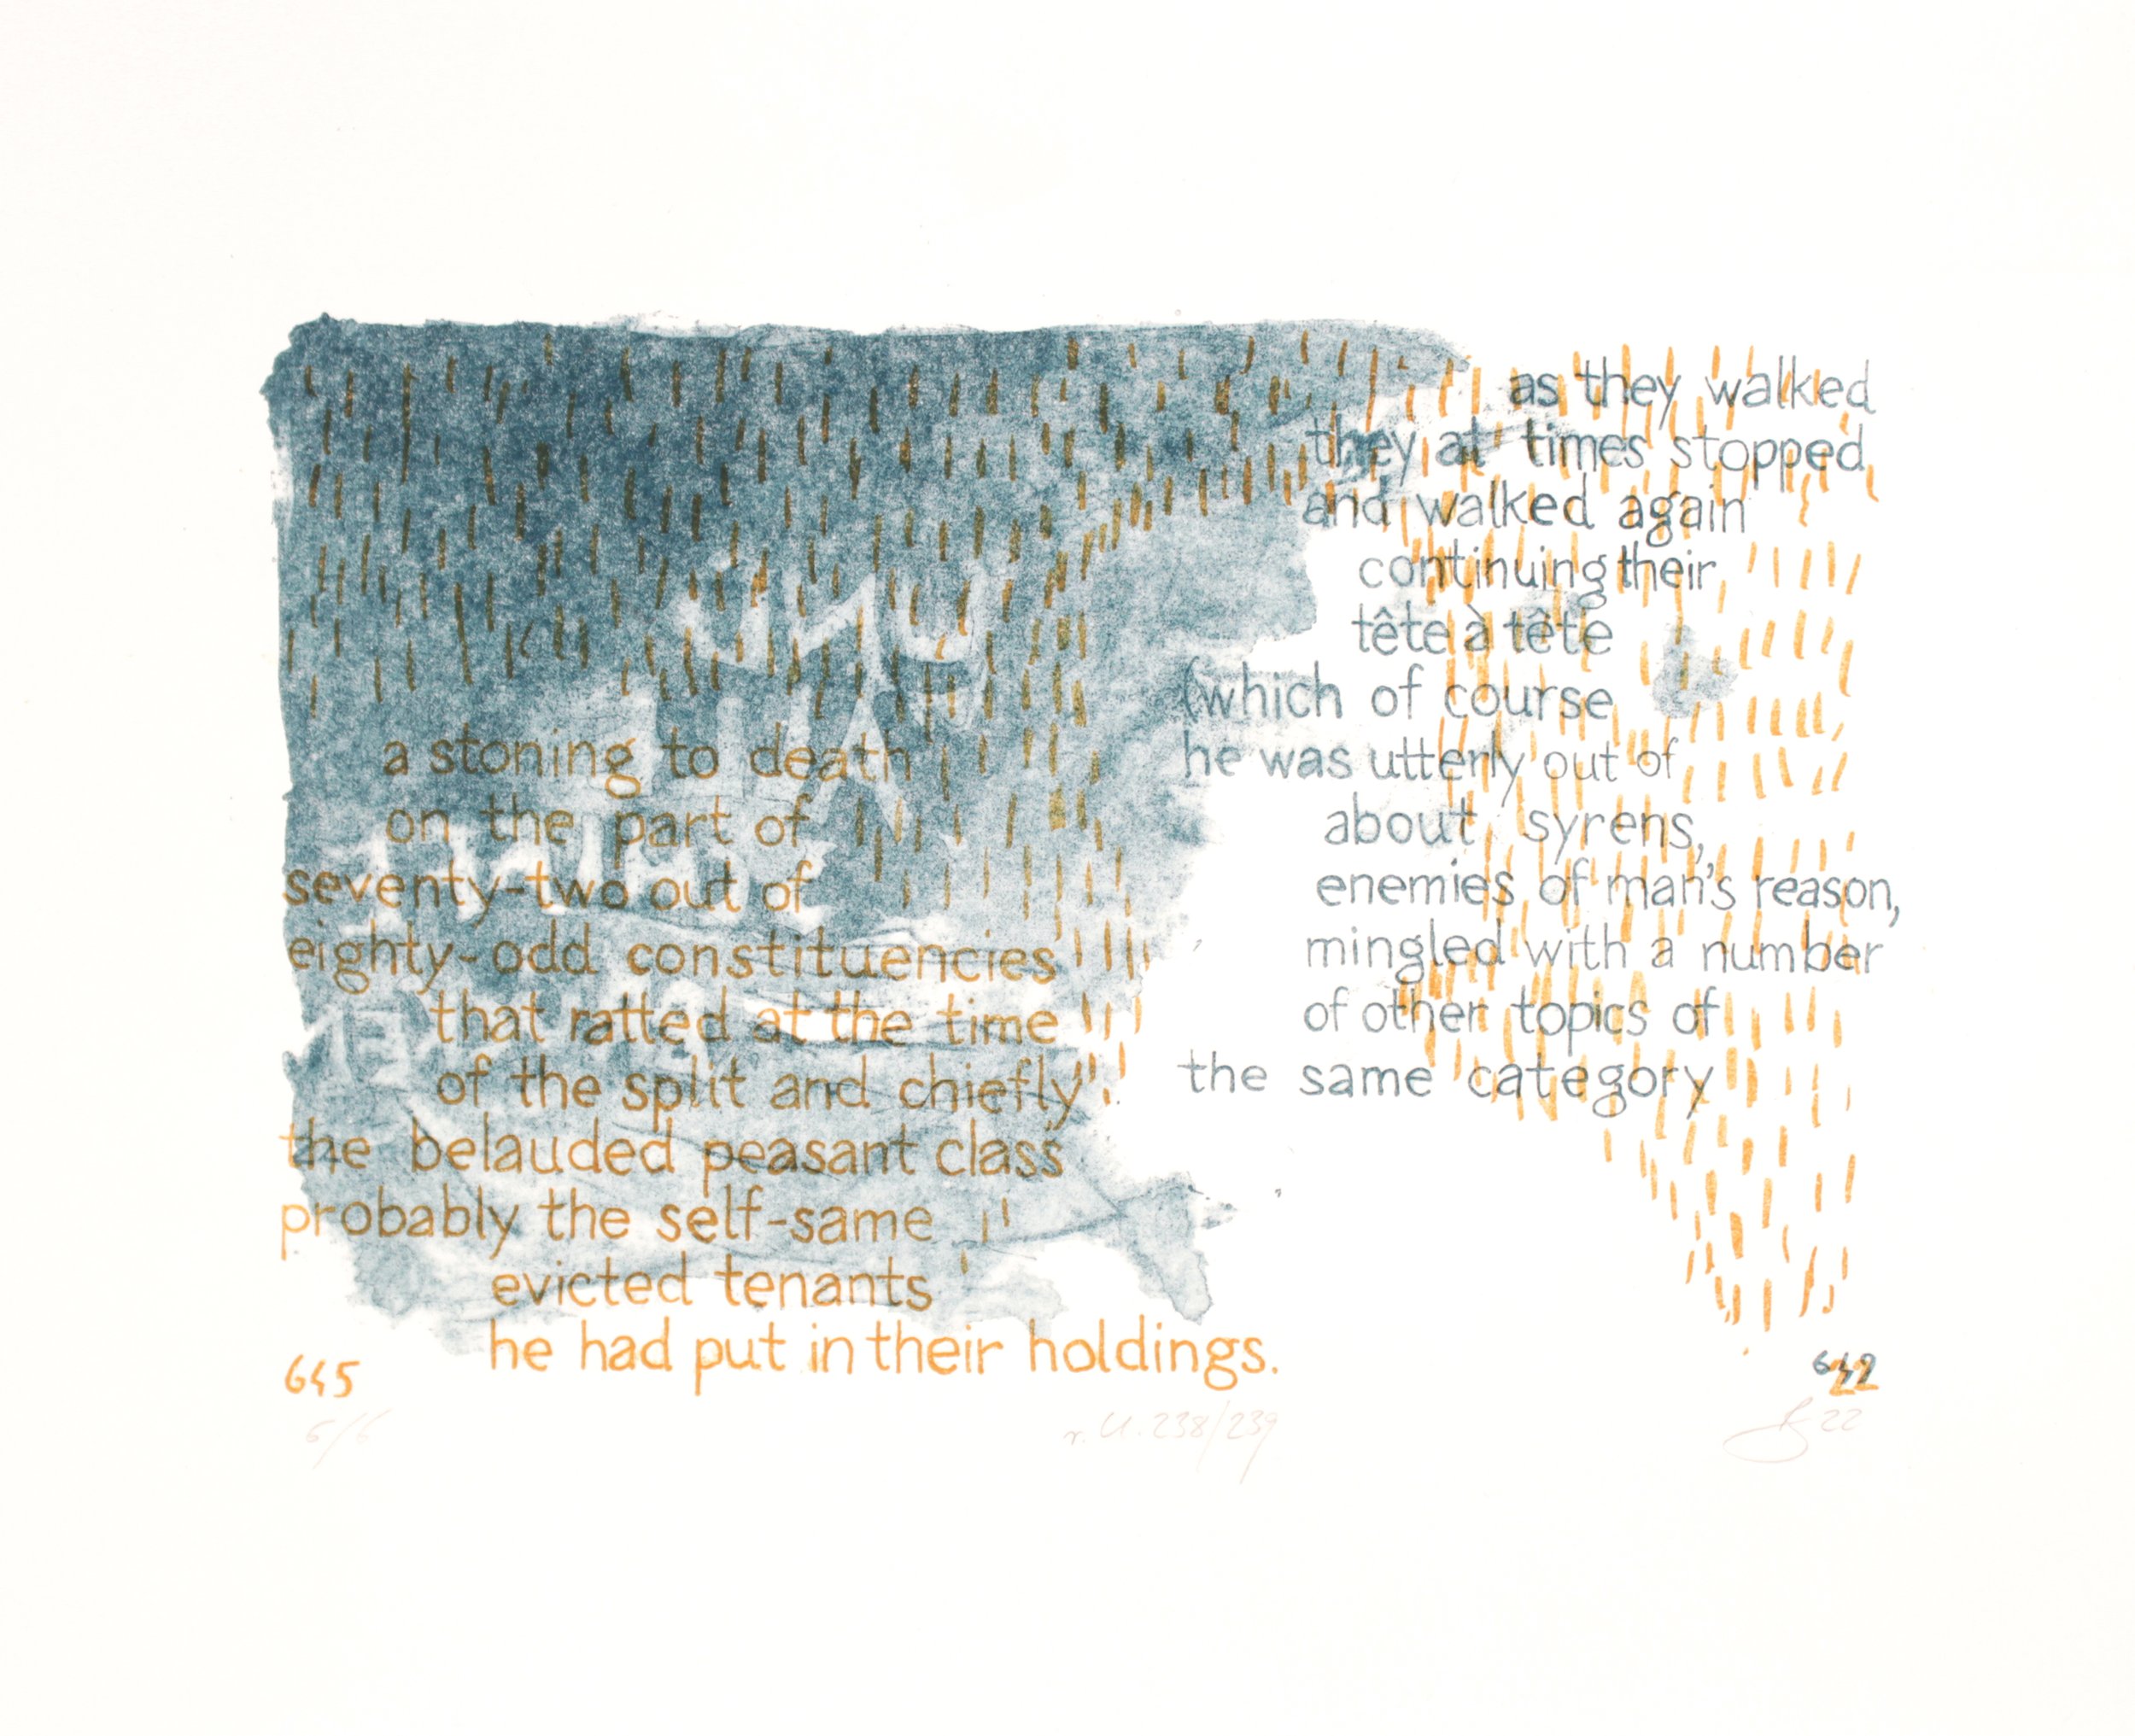 as they walked
they at times stopped
and walked again
continuing their
tête à tête
(which of course
he was utterly out of
about syrens,
enemies of man's reason,
mingled with a number
of other topics of
the same category
a stoning to death
on the part of
seventy-two out of
eighty-odd constituencies
that ratted at the time
of the split and chiefly
the belauded peasant class
probably the self-same
evicted tenants
he had put in their holdings.
645
6/6
r. U. 238/239
22